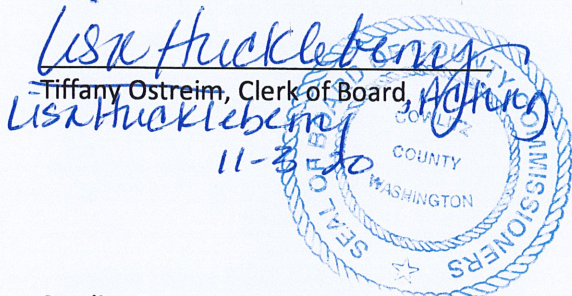 Lisa Huckleberry
Tiffany Ostreim, Clerk of Board, Acting
Lisa Huckleberry
11-3-20
SEAL OF BOARD OF COUNTY COMMISSIONERS
COWLITZ
COUNTY
WASHINGTON